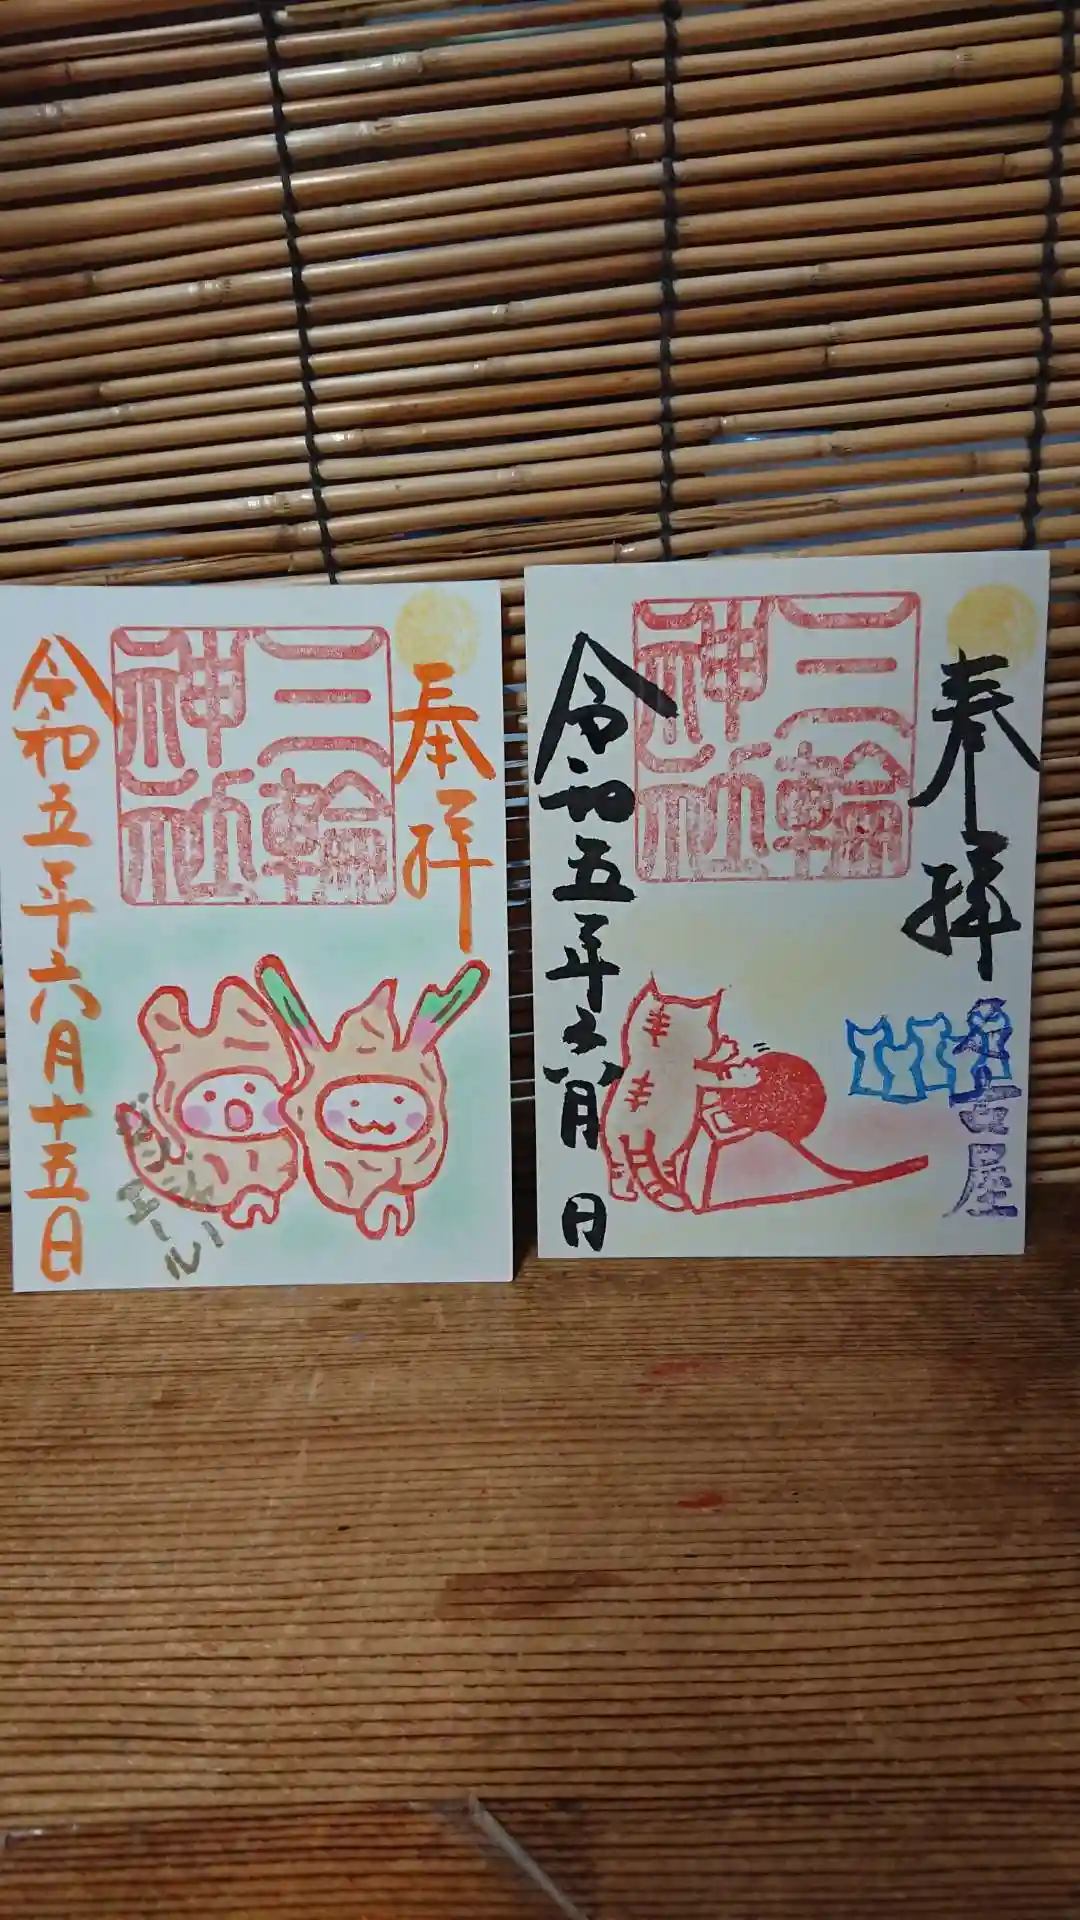 奉拝
三輪
神社
令和五年六月十五日
エール
奉拝
三輪
神社
名古屋
令和五年六月 日